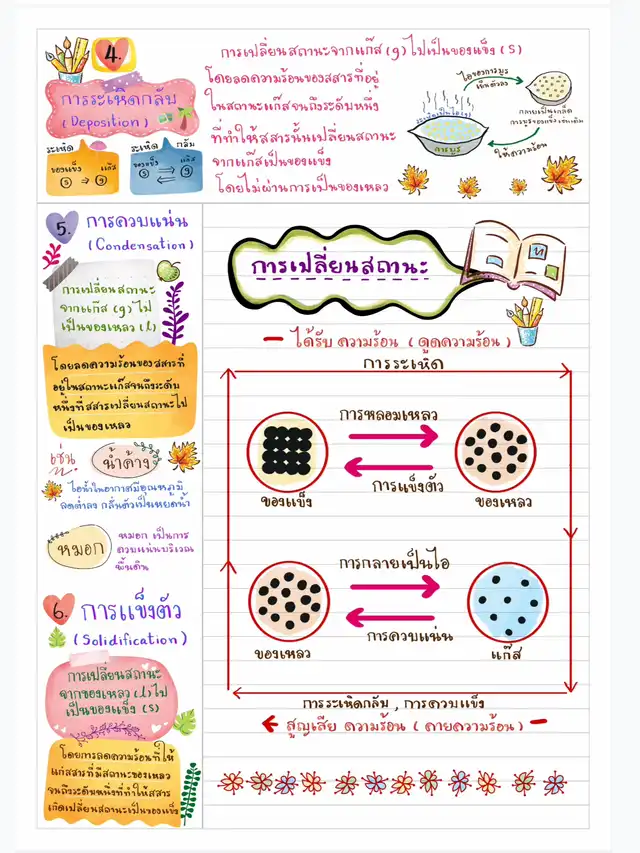 4.
การระเหิดกลับ
(Deposition)
ระเหิด
ของแข็ง แก๊ส
(s) → (g)
ระเหิด กลับ
ของแข็ง แก๊ส
(s) (g)
การเปลี่ยนสถานะจากแก๊ส (g) ไปเป็นของแข็ง (s)
โดยลดความร้อนของสสารที่อยู่
ในสถานะแก๊สจนถึงระดับหนึ่ง
ที่ทำให้สสารนั้นเปลี่ยนสถานะ
จากแก๊สเป็นของแข็ง
โดยไม่ผ่านการเป็นของเหลว
ไอของการบูร
เย็นตัวลง
กลายเป็นเกล็ด
การบูรของแข็งเช่นเดิม
ให้ความร้อน
5. การควบแน่น
(Condensation)
การเปลี่ยนสถานะ
จากแก๊ส (g) ไป
เป็นของเหลว (l)
โดยลดความร้อนของสสารที่
อยู่ในสถานะแก๊สจนถึงระดับ
หนึ่งที่สสารเปลี่ยนสถานะไป
เป็นของเหลว
เช่น
น้ำค้าง
ไอน้ำในอากาศมีอุณหภูมิ
ลดต่ำลง กลั่นตัวเป็นหยดน้ำ
หมอก
หมอก เป็นการ
ควบแน่นบริเวณ
พื้นดิน
6. การแข็งตัว
(Solidification)
การเปลี่ยนสถานะ
จากของเหลว (l) ไป
เป็นของแข็ง (s)
โดยการลดความร้อนที่ให้
แก่สสารที่มีสถานะของเหลว
จนถึงระดับหนึ่งที่ทำให้สสาร
เกิดเปลี่ยนสถานะเป็นของแข็ง
การเปลี่ยนสถานะ
ได้รับ ความร้อน ( ดูดความร้อน )
การระเหิด
การหลอมเหลว
การแข็งตัว
ของแข็ง
ของเหลว
การกลายเป็นไอ
การควบแน่น
ของเหลว
แก๊ส
การระเหิดกลับ , การควบแข็ง
สูญเสีย ความร้อน ( คายความร้อน )